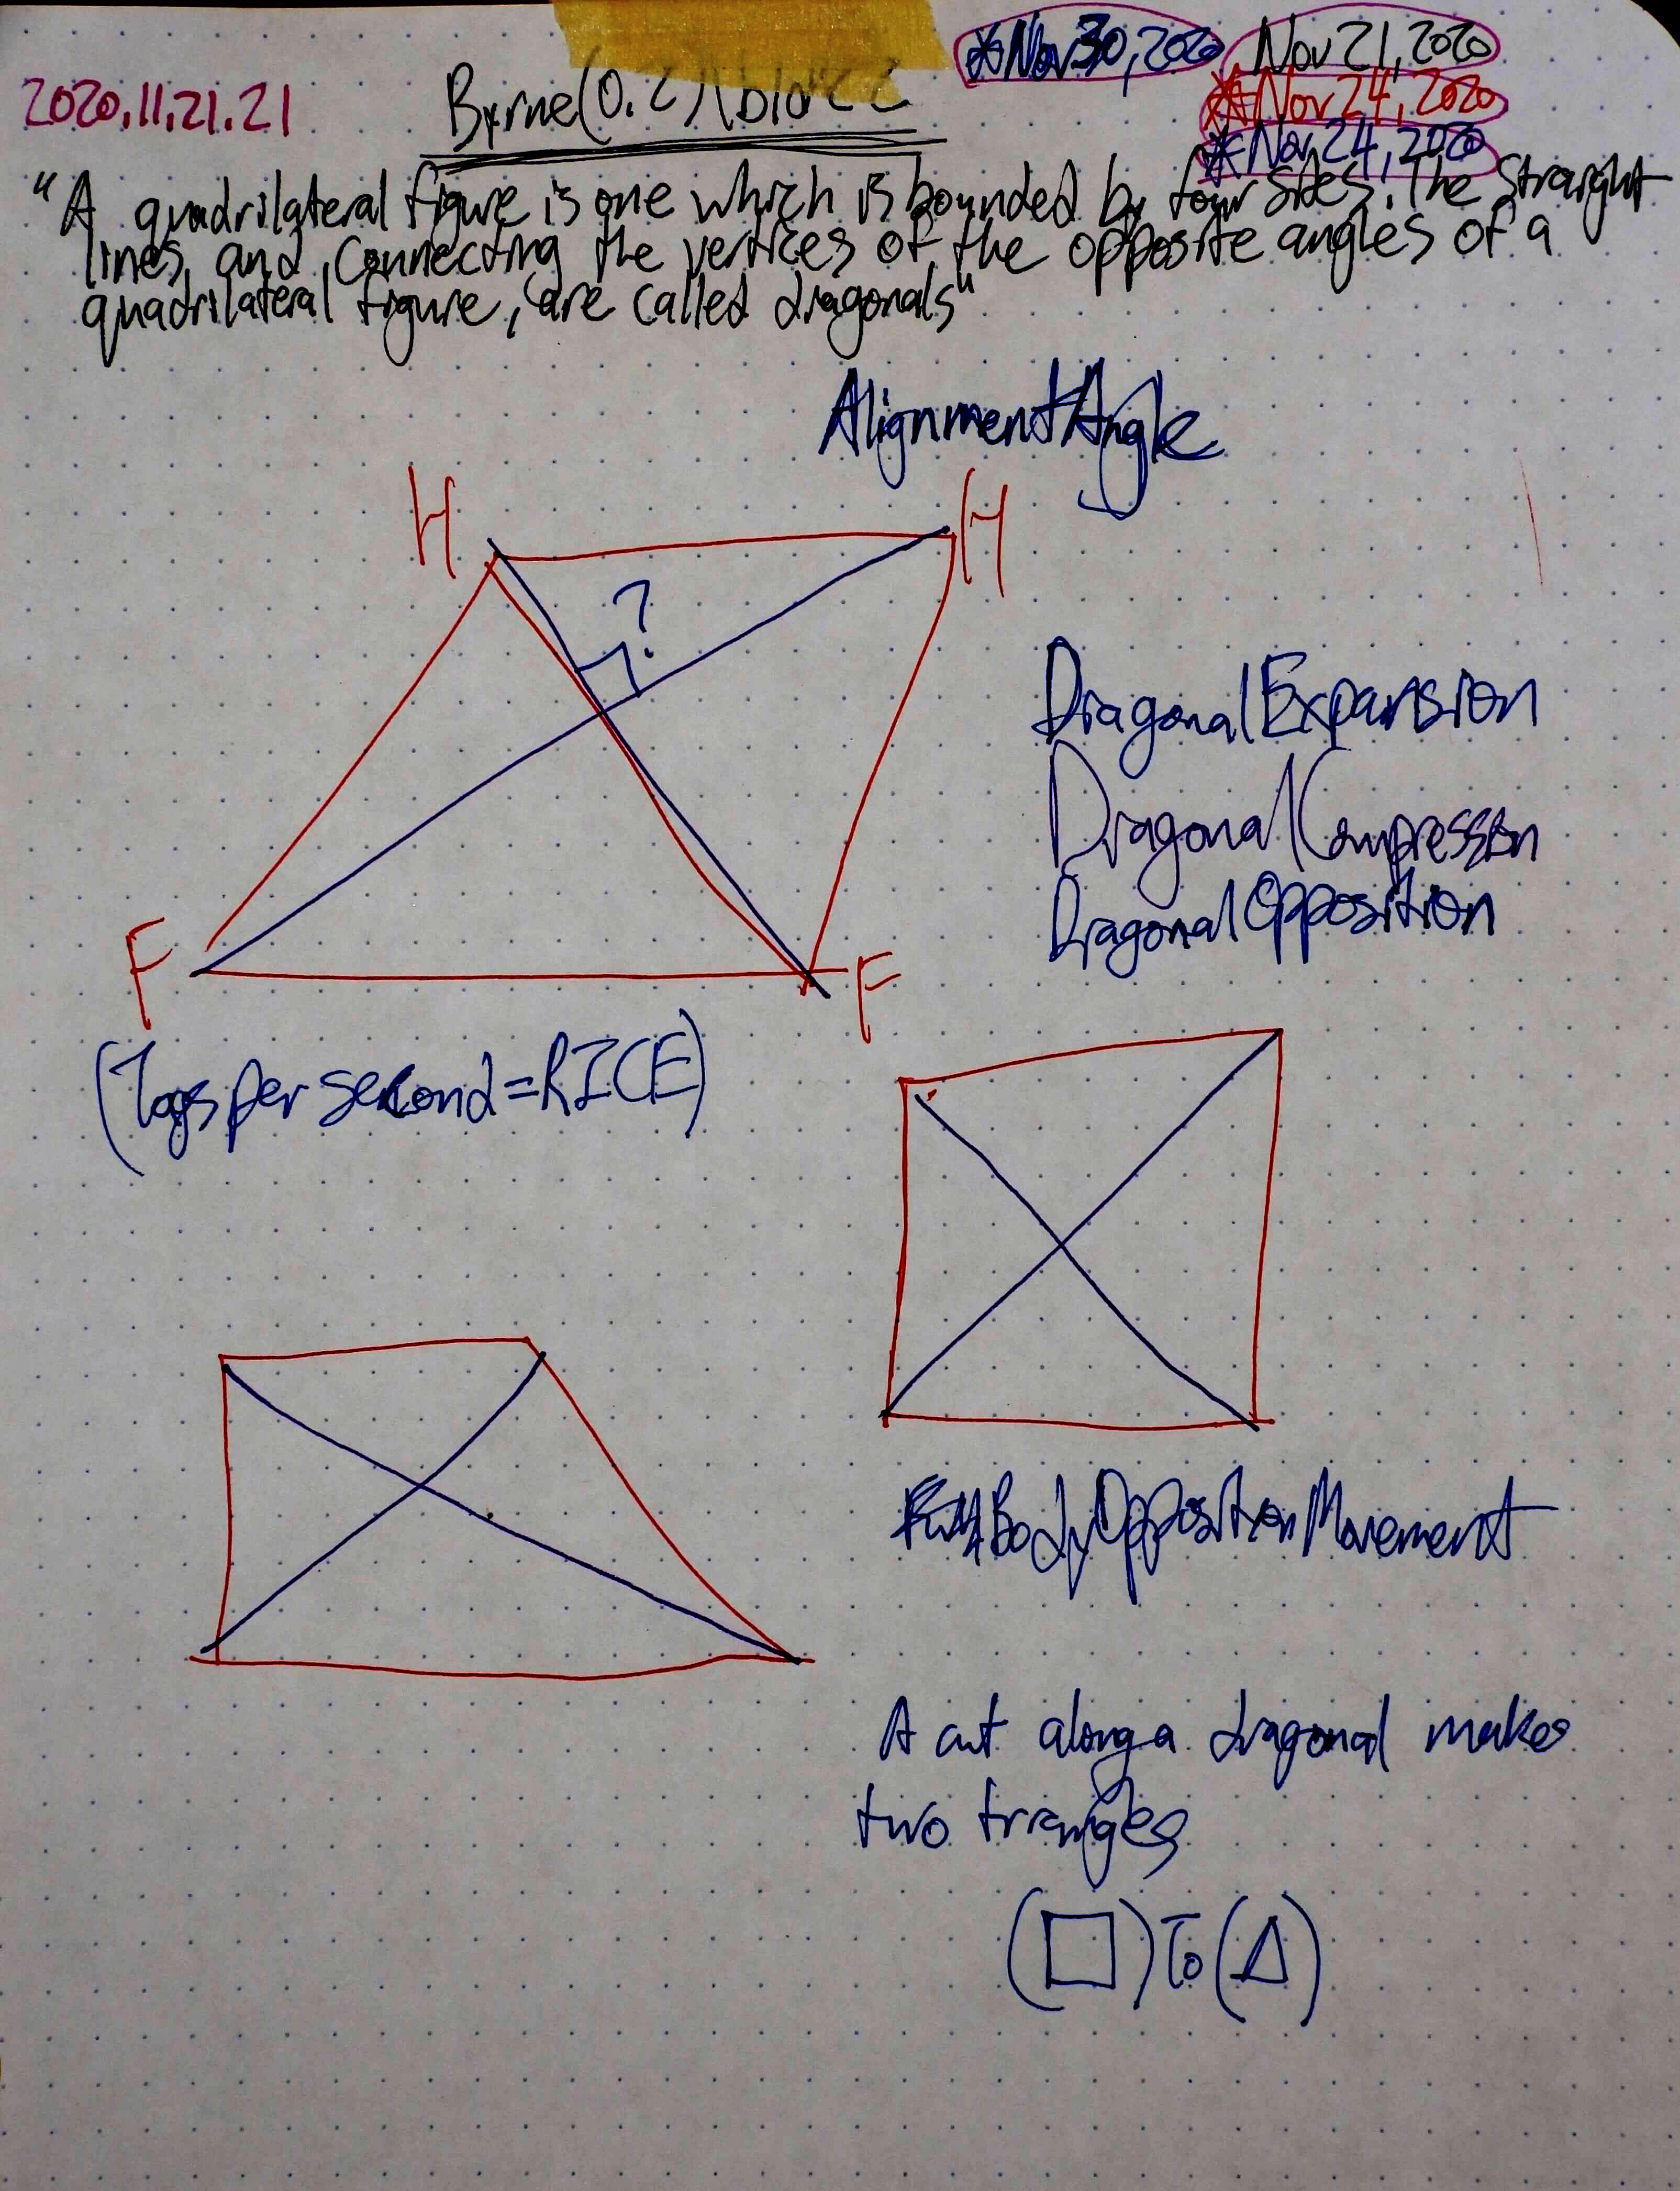 *Nov 30, 2020
Nov 21, 2020
2020.11.21.21
*Nov 24, 2020
Byrne(0.2)
*Nov 24, 2020
"A quadrilateral figure is one which is bounded by four sides. The straight
lines, and, connecting the vertices of the opposite angles of a
quadrilateral figure, are called diagonals"
AlignmentAngle
H
H
?
DiagonalExpansion
DiagonalCompression
DiagonalOpposition
F
F
per second=RICE)
BodyOppositionMovement
A cut along a diagonal makes
two triangles
(□)To(Δ)